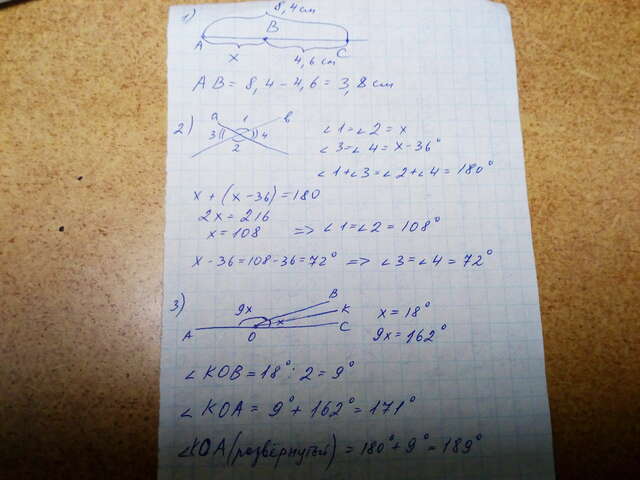 1) 8,4 см
A B C
x 4,6 см
AB = 8,4 - 4,6 = 3,8 см
2) a 1 b
3 4
2
∠1 = ∠2 = x
∠3 = ∠4 = x - 36°
∠1 + ∠3 = ∠2 + ∠4 = 180°
x + (x - 36) = 180
2x = 216
x = 108 => ∠1 = ∠2 = 108°
x - 36 = 108 - 36 = 72° => ∠3 = ∠4 = 72°
3) 9x B
x K
A O C
x = 18°
9x = 162°
∠KOB = 18° : 2 = 9°
∠KOA = 9° + 162° = 171°
∠KOA (развёрнутый) = 180° + 9° = 189°